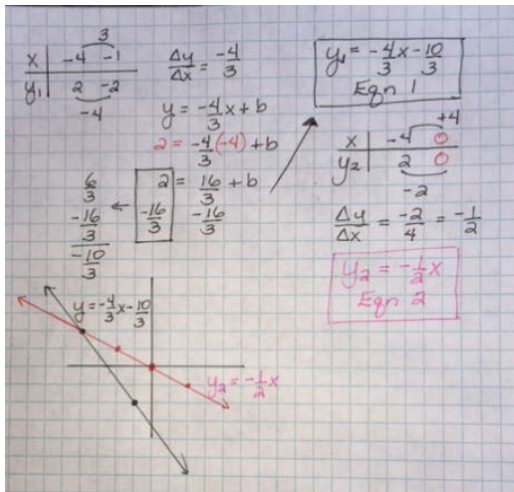 3
x | -4 -1
y₁ | 2 -2
-4
Δy/Δx = -4/3
y = -4/3 x + b
2 = -4/3 (-4) + b
2 = 16/3 + b
-16/3 -16/3
6/3
-16/3
-10/3
y₁ = -4/3 x - 10/3
Eqn 1
+4
x | -4 0
y₂ | 2 0
-2
Δy/Δx = -2/4 = -1/2
y₂ = -1/2 x
Eqn 2
y = -4/3 x - 10/3
y₂ = -1/2 x